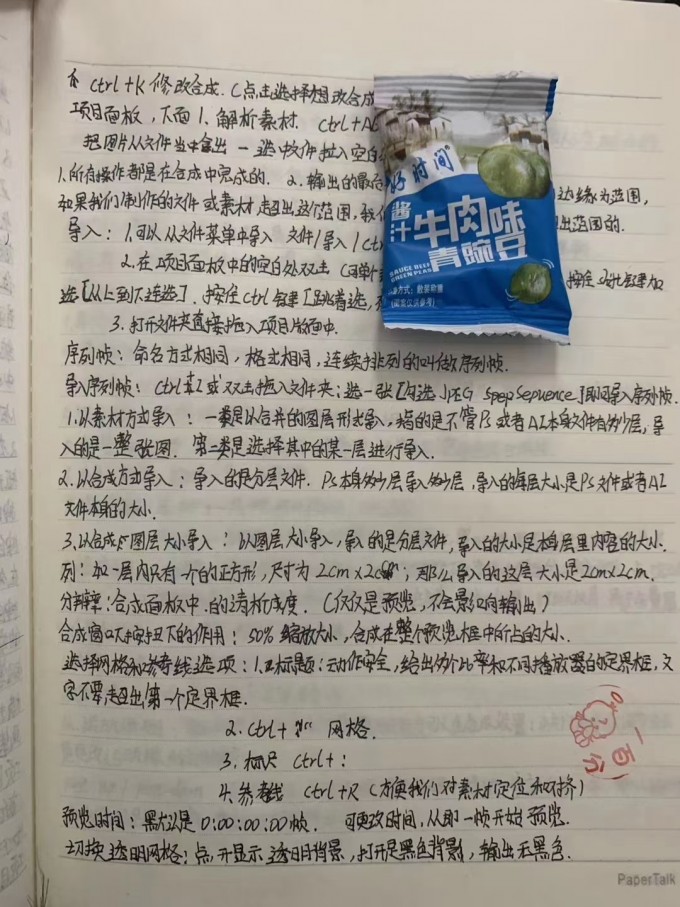 ctrl+K 修改合成.(点击选择想改合成
项目面板,下面 1. 解析素材. ctrl+A
把图片从文件当中拿出 一 选中文件拉入空白
1.所有操作都是在合成中完成的. 2.输出的最后
边缘为范围,
如果我们制作的文件或素材超出这个范围,我们
出范围的.
导入:1.可以从文件菜单中导入 文件/导入/ct
2.在项目面板中的空白处双击
按住 shift键加
选[从上到下连选].按住ctrl键[跳着选,
3.打开文件夹直接拖入项目面板中.
好时间
酱汁
牛肉味
青豌豆
SAUCE BEEF
GREEN PEAS
序列帧:命名方式相同,格式相同,连续排列的叫做序列帧.
导入序列帧:ctrl+I或双击拖入文件夹;选一张[勾选JPEG Spep Sepuence]即可导入序列帧.
1.以素材方式导入:一类是以合并的图层形式导入,指的是不管Ps或者AI本身文件有多少层,导
入的是一整张图. 第二类是选择其中的某一层进行导入.
2.以合成方式导入:导入的是分层文件. Ps本身多少层导入多少层,导入的每层大小是Ps文件或者AI
文件本身的大小.
3.以合成图层大小导入:以图层大小导入,导入的是分层文件,导入的大小是本身层里内容的大小.
列:如一层内只有一个的正方形,尺寸为2cm×2cm;那么导入的这层大小是2cm×2cm.
分辩率:合成面板中.的清析度. (仅仅是预览,不会影响输出)
合成窗口下按扭下的作用:50% 缩放大小,合成在整个预览框中所占的大小.
选择网格和参考线选项:1.标题:动作安全,给出多个比率和不同播放器的定界框,文
字不要超出第一个定界框.
2.ctrl+ " 网格.
3.标尺 ctrl+:
4.参考线 ctrl+R (方便我们对素材定位和对齐)
一百分
预览时间:黑犬认是0:00:00:00帧. 可更改时间,从那一帧开始预览.
切换透明网格:点开显示透明背景,打开是黑色背影,输出无黑色.
PaperTalk